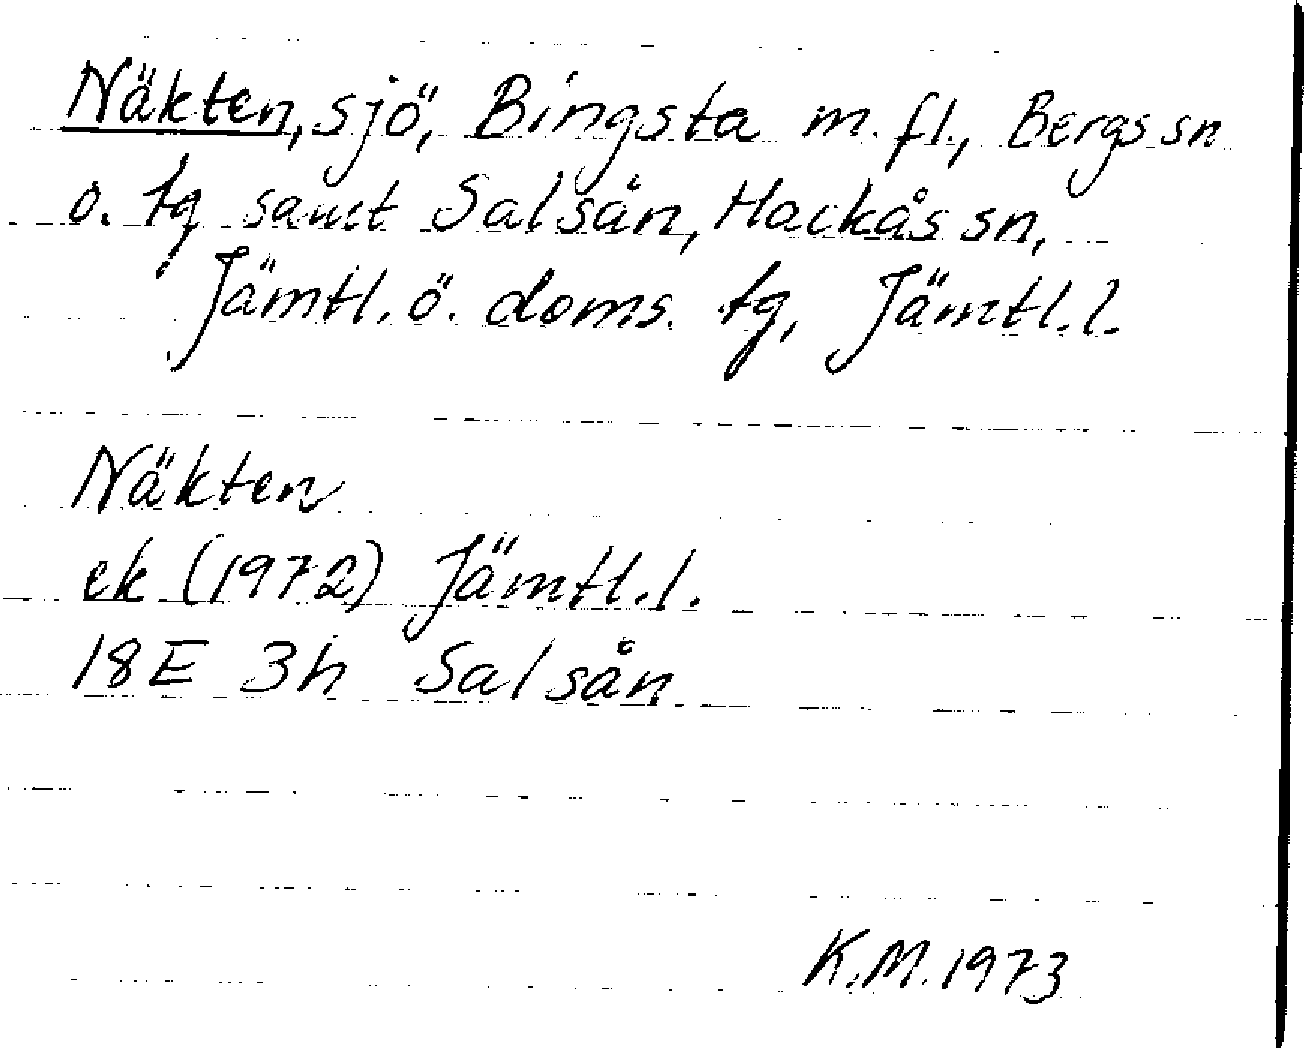 Näkten, sjö, Bingsta m. fl., Bergs sn
o. tg samt Salsån, Hackås sn,
Jämtl. ö. doms. tg, Jämtl. l.
Näkten
ek (1972) Jämtl. l.
18E 3h Salsån
K.M. 1973